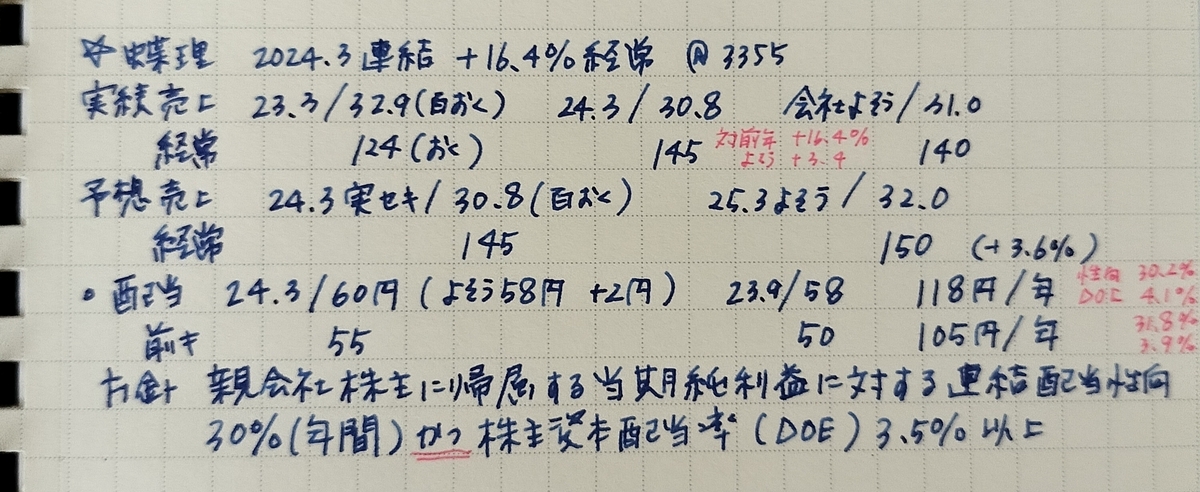 ☆ 蝶理 2024.3 連結 +16.4% 経常 @ 3355
実績売上 23.3/32.9(百おく) 24.3/30.8 会社よそう/31.0
経常 124(おく) 145 対前年 +16.4% よそう +3.4 140
予想売上 24.3実セキ/30.8(百おく) 25.3よそう/32.0
経常 145 150 (+3.6%)
・配当 24.3/60円(よそう58円 +2円) 23.9/58 118円/年 性向 30.2% DOE 4.1%
前キ 55 50 105円/年 31.8% 3.9%
方針 親会社株主に帰属する当期純利益に対する連結配当性向
30%(年間)かつ株主資本配当率(DOE)3.5%以上